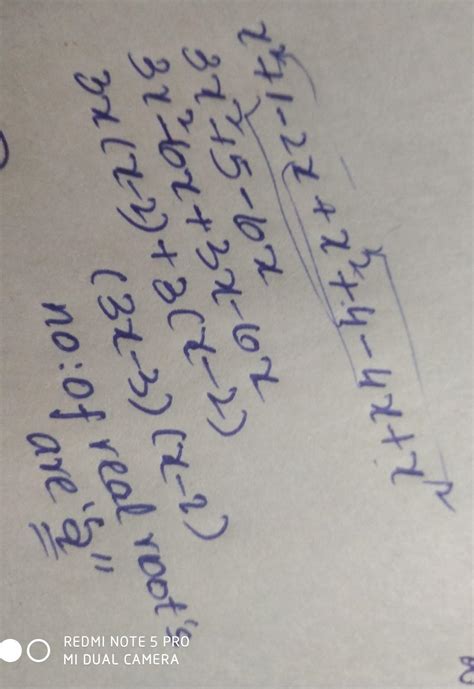 x²+1-2x+x²+4-4x+x²
3x²+5-6x
3x²-6x+3x-6x
3x(x-2)+3(x-2)
(3x-3)(x-2)
no:of real root's
are "2"
REDMI NOTE 5 PRO
MI DUAL CAMERA